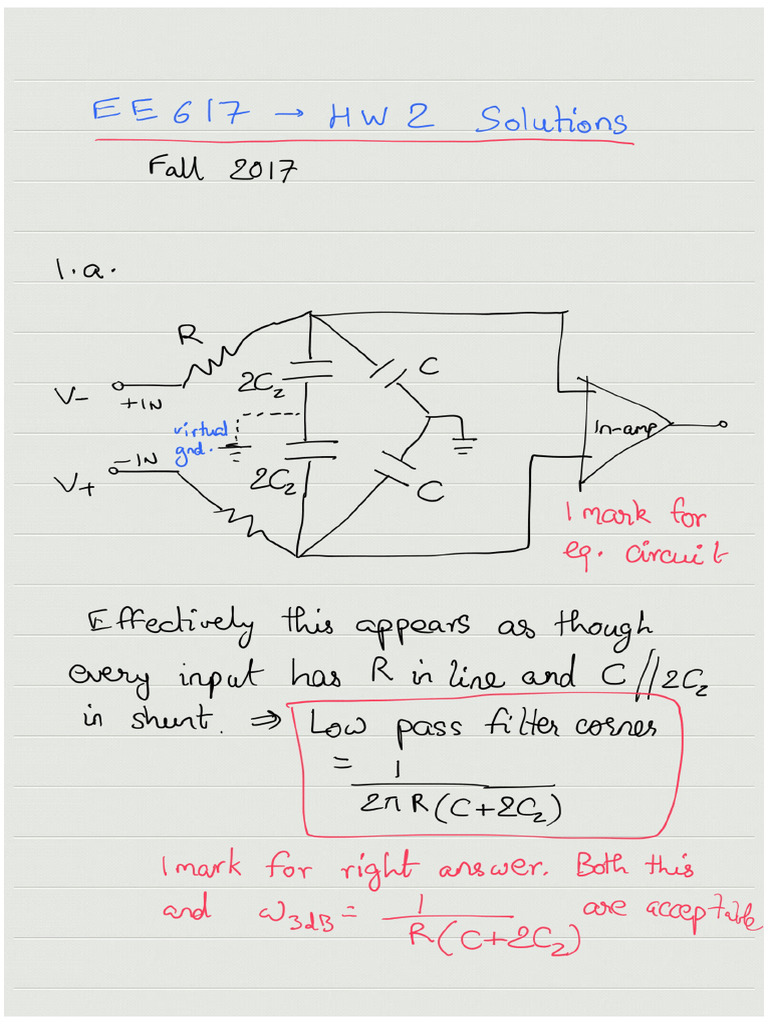 EE617 → HW2 Solutions
Fall 2017
1.a.
R
2C₂
C
V-
+IN
virtual
gnd.
-IN
V+
2C₂
C
In-amp
1 mark for
eq. circuit
Effectively this appears as though
every input has R in line and C//2C₂
in shunt. ⇒ Low pass filter corner
= 1
2πR(C+2C₂)
1 mark for right answer. Both this
and ω3dB = 1 are acceptable
R(C+2C₂)